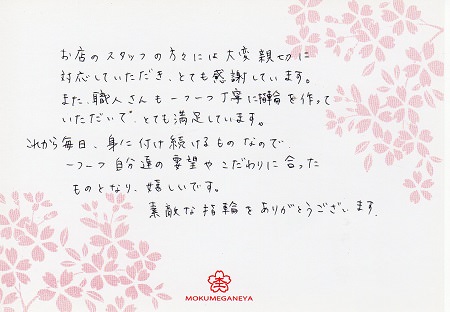 お店のスタッフの方々には大変親切に
対応していただき、とても感謝しています。
また、職人さんも一つ一つ丁寧に指輪を作って
いただいて、とても満足しています。
これから毎日、身に付け続けるものなので、
一つ一つ自分達の要望やこだわりに合った
ものとなり、嬉しいです。
素敵な指輪をありがとうございます。
MOKUMEGANEYA